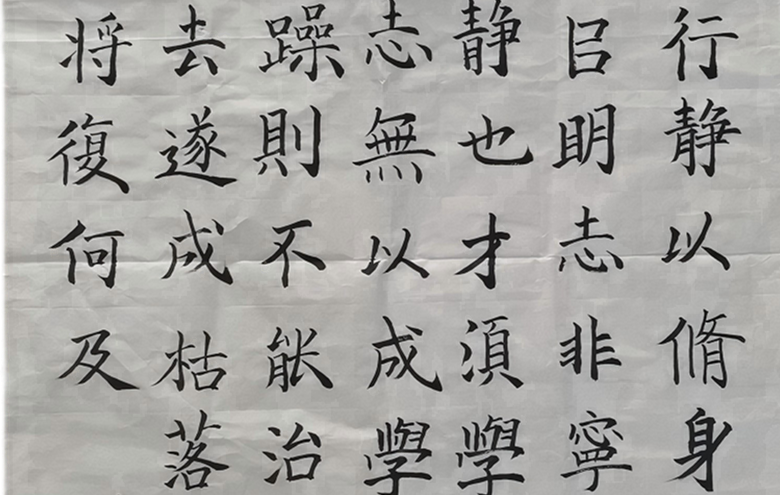 行静以脩身
㠯眀志非寧
静也才須學
志無以成學
躁則不能治
去遂成枯落
将復何及